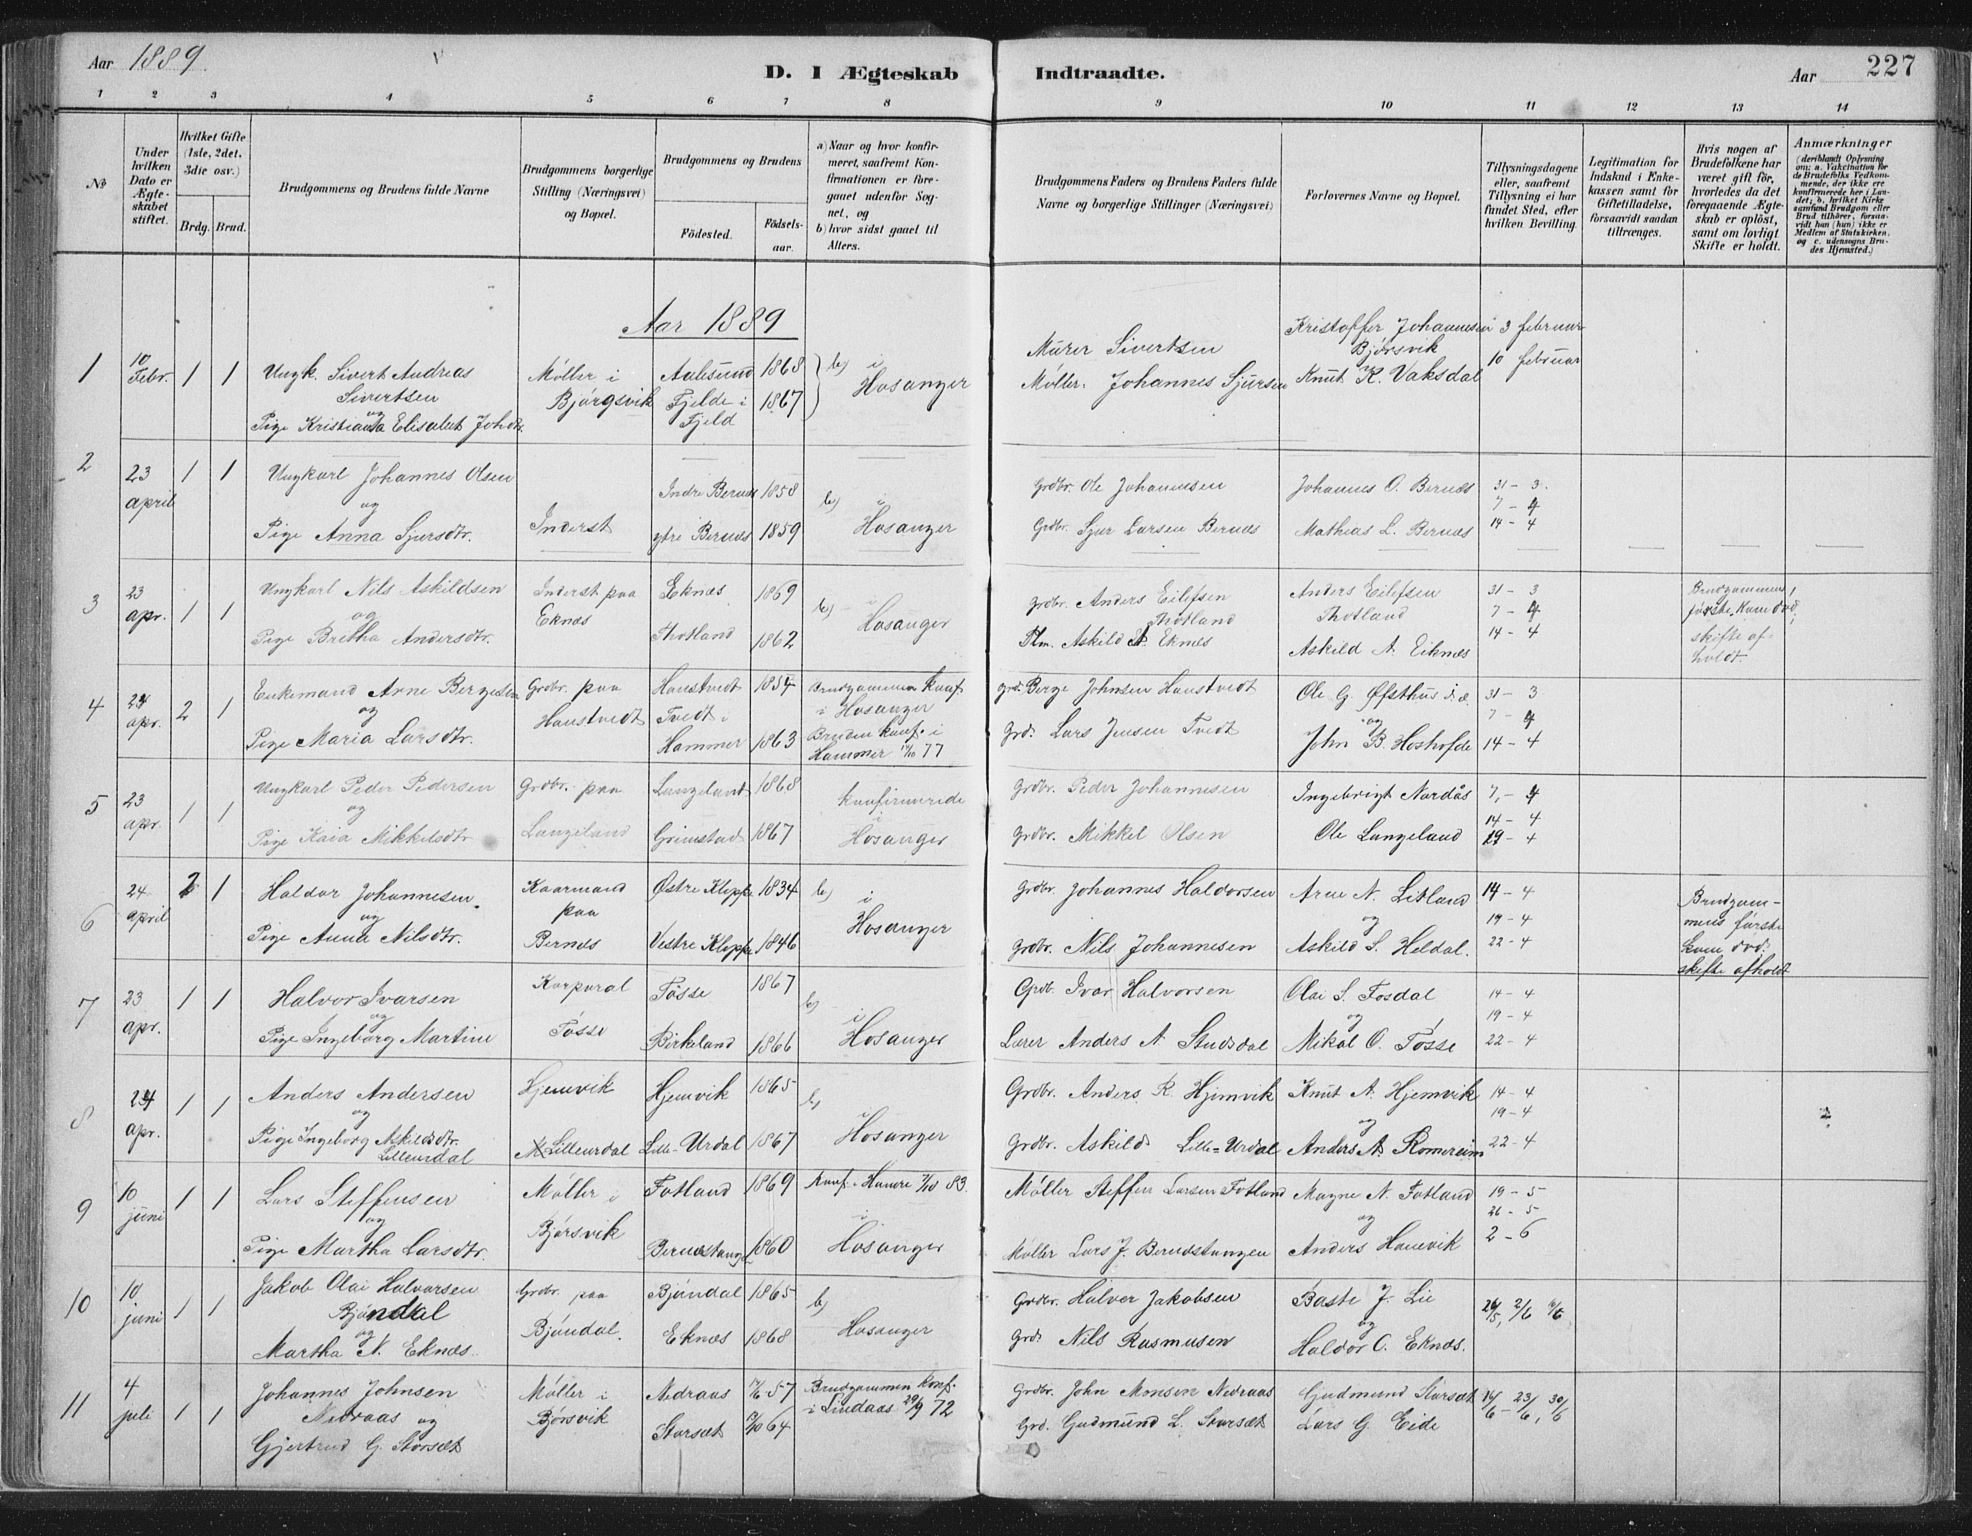 Aar 1889.
D. I Ægteskab Indtraadte.
Aar 227
1 2 3 4 5 6 7 8 9 10 11 12 13 14
No
Under hvilken Dato er Ægteskabet stiftet.
Hvilket Gifte (1ste, 2det, 3die osv.)
Brdg. Brud.
Brudgommens og Brudens fulde Navne
Brudgommens borgerlige Stilling (Næringsvei) og Bopæl.
Brudgommens og Brudens
Födested. Födsels-aar.
a) Naar og hvor konfirmeret, saafremt Konfirmationen er foregaaet udenfor Sognet, og
b) hvor sidst gaaet til Alters.
Brudgommens Faders og Brudens Faders fulde Navne og borgerlige Stillinger (Næringsvei)
Forlovernes Navne og Bopæl.
Tillysningsdagene eller, saafremt Tillysning ei har fundet Sted, efter hvilken Bevilling.
Legitimation for Indskud i Enkekassen samt for Giftetilladelse, forsaavidt saadan tiltrænges.
Hvis nogen af Brudefolkene har været gift för, hvorledes da det foregaaende Ægteskab er oplöst, samt om lovligt Skifte er holdt.
Anmærkninger
(deriblandt Oplysning om: a. Vakcination for de Brudefolks Vedkommende, der ikke ere konfirmerede her i Landet; b. hvilket Kirkesamfund Brudgom eller Brud tilhörer, forsaavidt han (hun) ikke er Medlem af Statskirken, og c. udensogns Brudes Hjemsted.)
Aar 1889
1 10 Febr. 1 1 Ungk. Sivert Andreas Sivertsen og Pige Kristiansa Elisabet Johdtr. Møller i Bjørgsvik Aalesund 1868 Fjelde i Fjeld 1867 b) i Hosanger Murer Sivertsen Møller. Johannes Sjursen Kristoffer Johannesen Bjørsvik Knut K. Vaksdal 3 februar 10 februar
2 23 april 1 1 Ungkarl Johannes Olsen og Pige Anna Sjursdtr. Inderst Indre Bernes 1858 ytre Bernes 1859 b) i Hosanger Grdbr. Ole Johannesen Grdbr. Sjur Larsen Bernæs Johannes O. Bernæs Mathias L. Bernæs 31-3. 7-4 14-4
3 23 apr. 1 1 Ungkarl Nils Askildsen og Pige Britha Andersdtr. Inderst paa Eknæs Eknæs 1869 Thotland 1862 b) i Hosanger Grdbr. Anders Eilefsen Thotland Plm. Askild A. Eknes Anders Eilefsen Thotland Askild A. Eiknæs 31-3 7-4 14-4 Brudgammens første kone død, skifte afholdt
4 24 apr. 2 1 Enkemand Arne Bergesen og Pige Maria Larsdtr. Grdbr. paa Haustvedt Haustvedt 1854 Tvedt i Hammer 1863 Brudgammen konf. i Hosanger Bruden konf. i Hammer 77 grd. Berge Johnsen Haustvedt Grd. Lars Jensen Tvedt Ole G. Øfsthus d.æ. og John B. Hoshofde 31-3 7-4 14-4
5 23 apr. 1 1 Ungkarl Peder Pedersen og Pige Kaia Mikkelsdtr. Grdbr. paa Langeland Langeland 1868 Grimstad 1867 konfirmerede i Hosanger Grdbr. Peder Johannesen Grdbr. Mikkel Olsen Ingebrigt Nordås Ole Langeland 7-4 14-4 19-4
6 24 april 2 1 Haldor Johannesen og Pige Anna Nilsdtr. Kaarmand paa Bernæs Østre Kleppe 1834 Vestre Kleppe 1846 b) i Hosanger Grdbr. Johannes Haldorsen grdbr. Nils Johannesen Arne N. Litland og Askild S. Heldal. 14-4 19-4 22-4 Brudgammens første kone død. skifte afholdt
7 23 apr. 1 1 Halvor Ivarsen og Pige Ingeborg Martine Korporal Tøsse Tøsse 1867 Birkeland 1866 b) i Hosanger Grdb. Ivar Halvorsen Lærer Anders A Studsdal Olai S. Fosdal og Mikal O. Tøsse 14-4 19-4 22-4
8 24 apr. 1 1 Anders Andersen og Pige Ingeborg Askildsdtr. Lilleurdal Hjemvik Lilleurdal Hjemvik 1865 Lille-Urdal 1867 b) Hosanger Grdbr. Anders R. Hjemvik Grdbr. Askild Lille=Urdal Knut A. Hjemvik og Anders A. Romereim 14-4 19-4 22-4
9 10 juni 1 1 Lars Steffensen og Pige Martha Larsdtr. Møller i Bjørsvik Fotland 1869 Berndstangen 1860 Konf. i Hamre 83. i Hosanger Møller Steffen Larsen Fotland Møller Lars J. Berndstangen Magne N. Fotland og Anders Hanevik 19-5 26-5 2-6
10 10 juni 1 1 Jakob Olai Halvorsen Bjøndal og Martha N. Eknæs. Grdbr. paa Bjøndal. Bjøndal 1865 Eknæs 1868 b) Hosanger Grdbr. Halver Jakobsen Grd. Nils Rasmusen Baste J. Lie og Haldor O. Eknæs. 26/5, 2/6
11 4 juli 1 1 Johannes Johnsen Nedraas og Gjertrud G. Storsæt Møller i Bjørsvik Nedraas 57 Storsæt 64 Brudgammen konf. i Lindaas 29/9 72 Grdbr. John Monsen Nedraas Grd. Gudmund L. Storsæt Gudmund Storsæt Lars G. Eide 16/6 - 23/6, 30/6